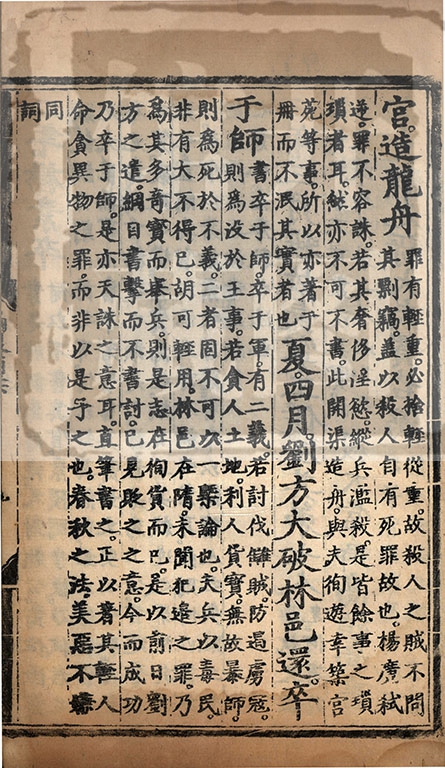 宮。造龍舟
罪有輕重。必捨輕從重。故殺人之賊不問
其剽竊。蓋以殺人自有死罪故也。楊廣弒
逆。罪不容誅。若其奢侈淫慾。縱兵濫殺。是皆餘事之瑣
瑣者耳。然亦不可不書。此開渠造舟。與夫徇遊幸築宮
苑等事。所以亦著于
冊而不泯其實者也
夏。四月。劉方大破林邑還。卒
于師
書卒于師。卒于軍。有二義。若討伐讎賊。防遏虜寇。
則爲没於王事。若貪人土地。利人貨寶。無故暴師。
則爲死於不義。二者固不可以一槩論也。夫兵以毒民。
非有大不得已。胡可輕用。林邑在隋。未聞犯邊之罪。乃
爲其多奇寶而舉兵。則是志在徇貨而已。是以前日劉
方之遣。綱目書擊而不書討。已見貶之之意。今而成功
乃卒于師。是亦天誅之意耳。直筆書之。正以著其輕人
命貪異物之罪。而非以是予之也。春秋之法。美惡不嫌
同
詞